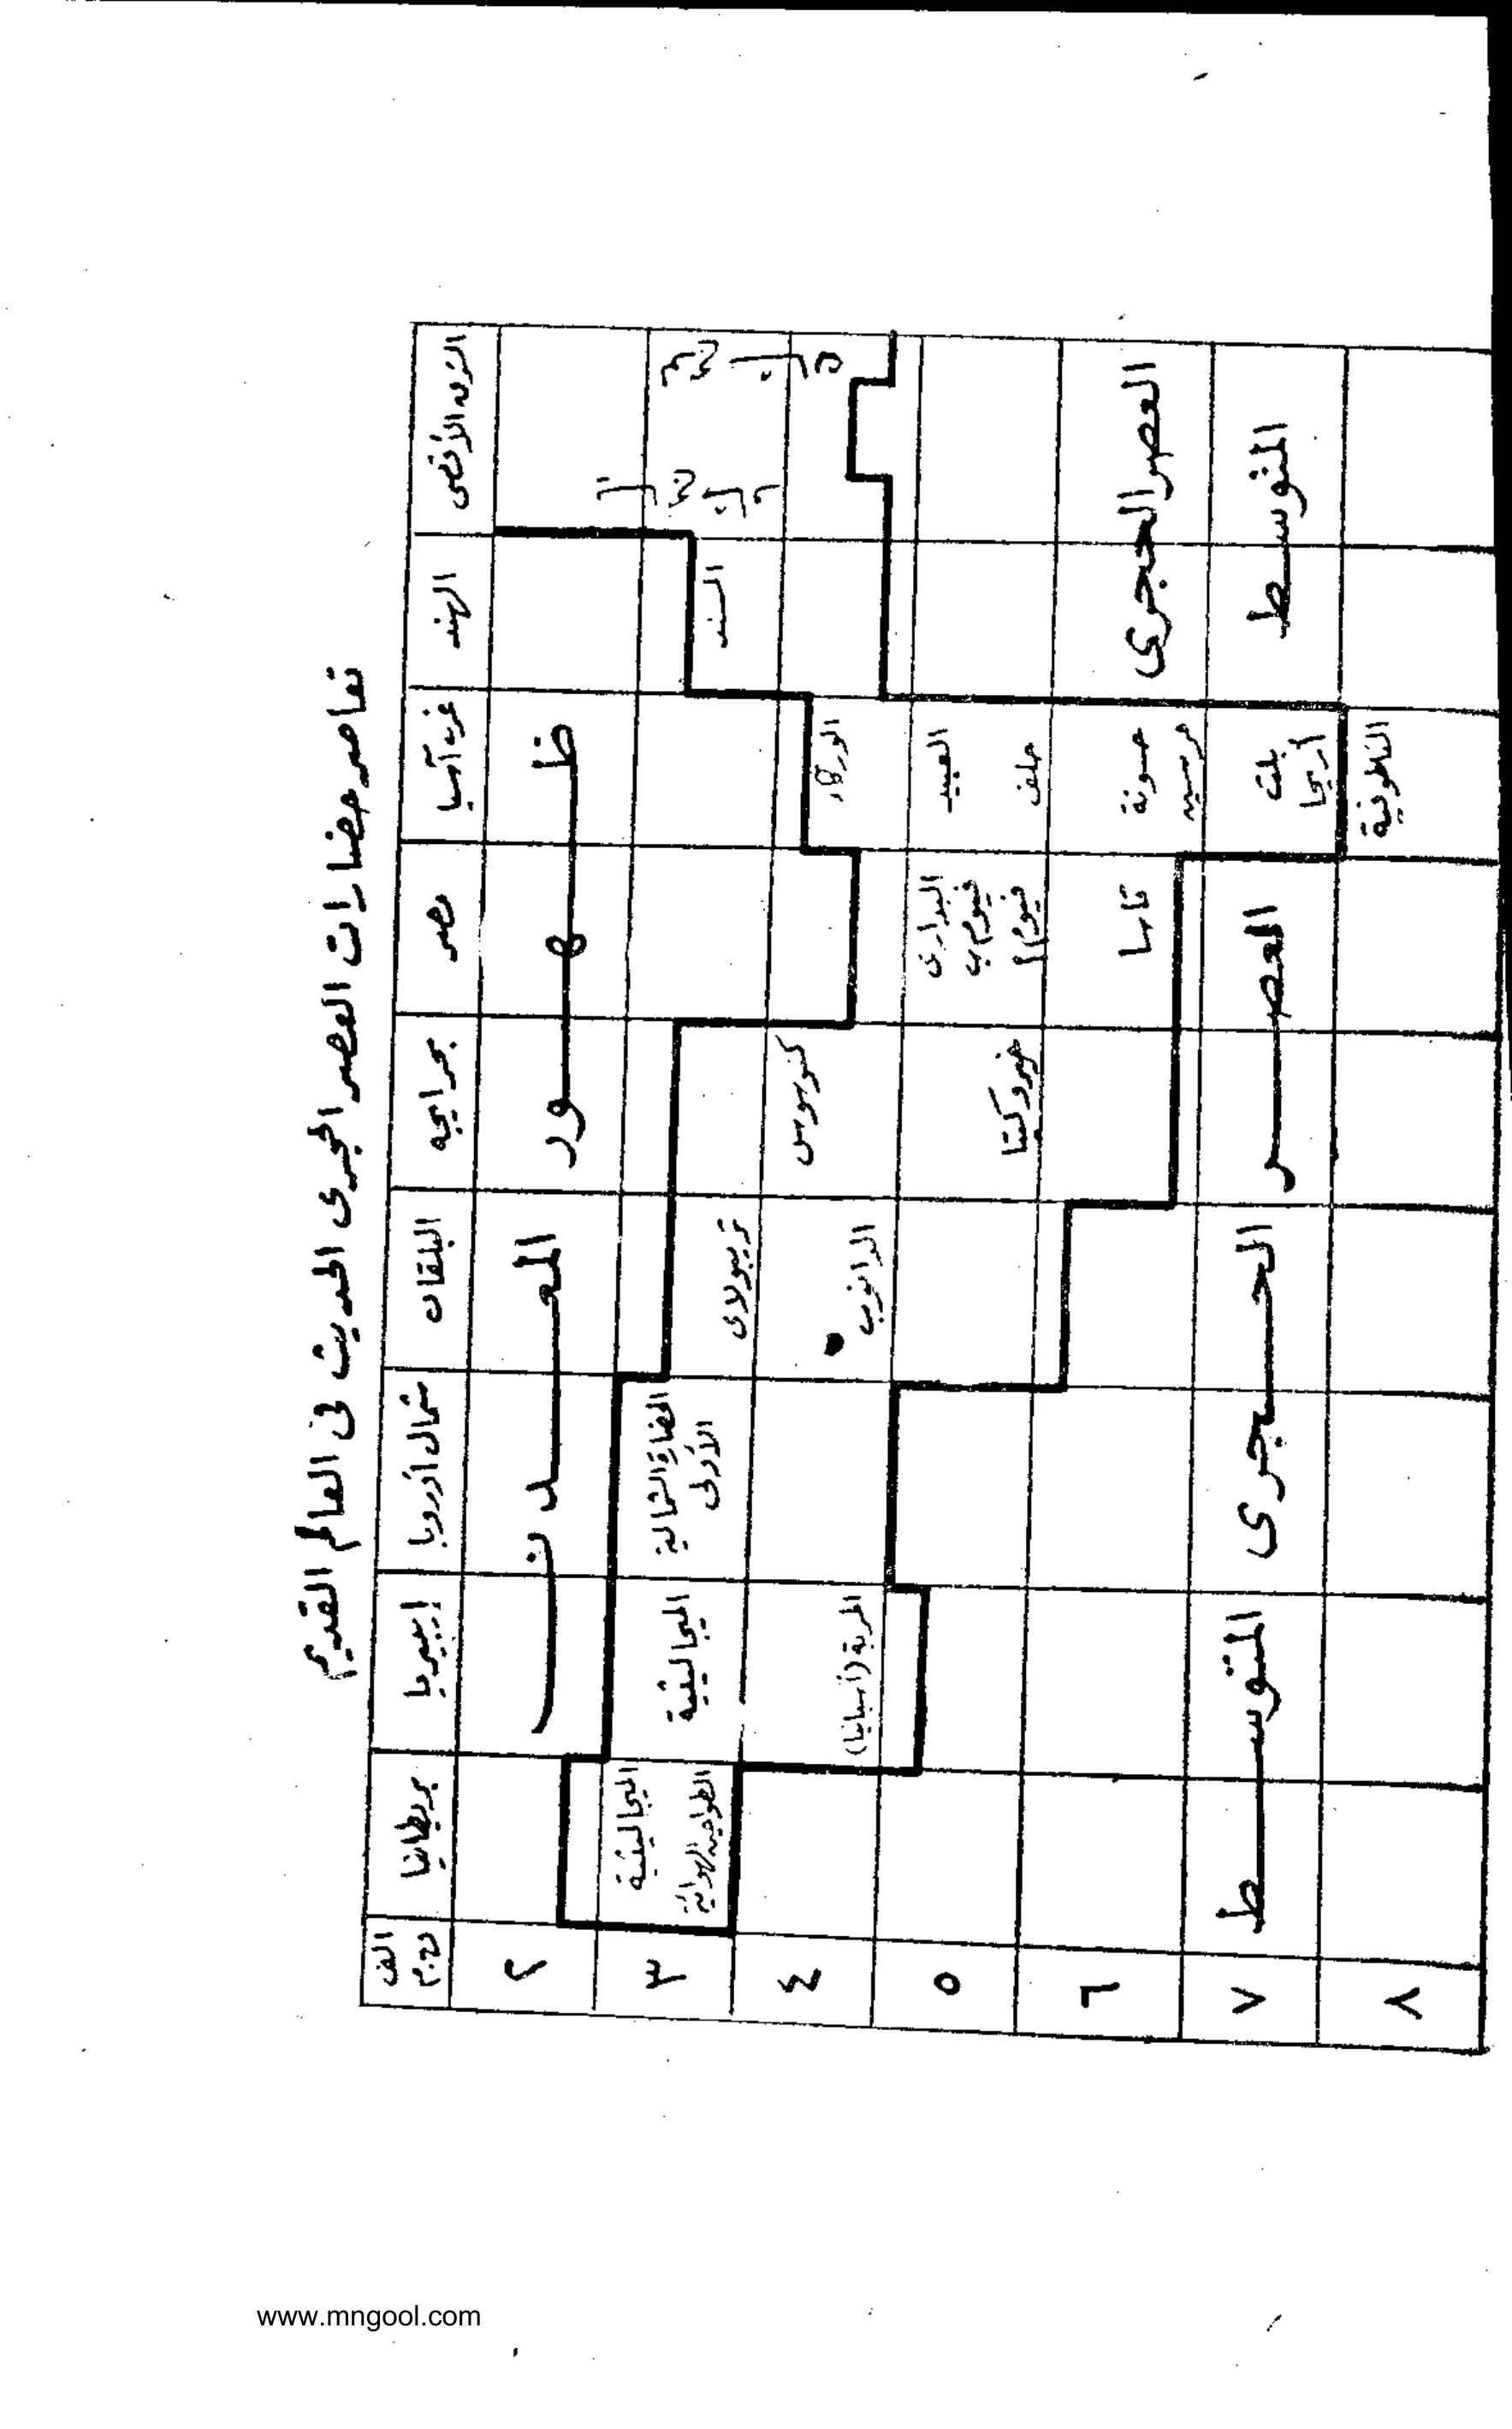 تعاصر حضارات العصر الحجرى الحديث فى العالم القديم
الشرق الأقصى
الهند
غرب آسيا
مصر
بحر ايجه
البلقان
شمال أوروبا
إيبيريا
بريطانيا
الف
ق.م
٢
ظهور
المعدن
٣
السند
تريبولاى
الحضارة الشمالية
الأولى
الميجاليثية
الميجاليثية
الطواحين الهوائية
٤
الوركاء
كنوسوس
الدانوب
المرية (أسبانيا)
٥
العبيد
حلف
البدارى
فيوم ب
فيوم أ
خيروكيتا
٦
العصر الحجرى
حسونة
مرسين
تاسا
٧
المتوسط
بلت
أريحا
العصر
الحجرى
المتوسط
٨
الناطوفية
www.mngool.com